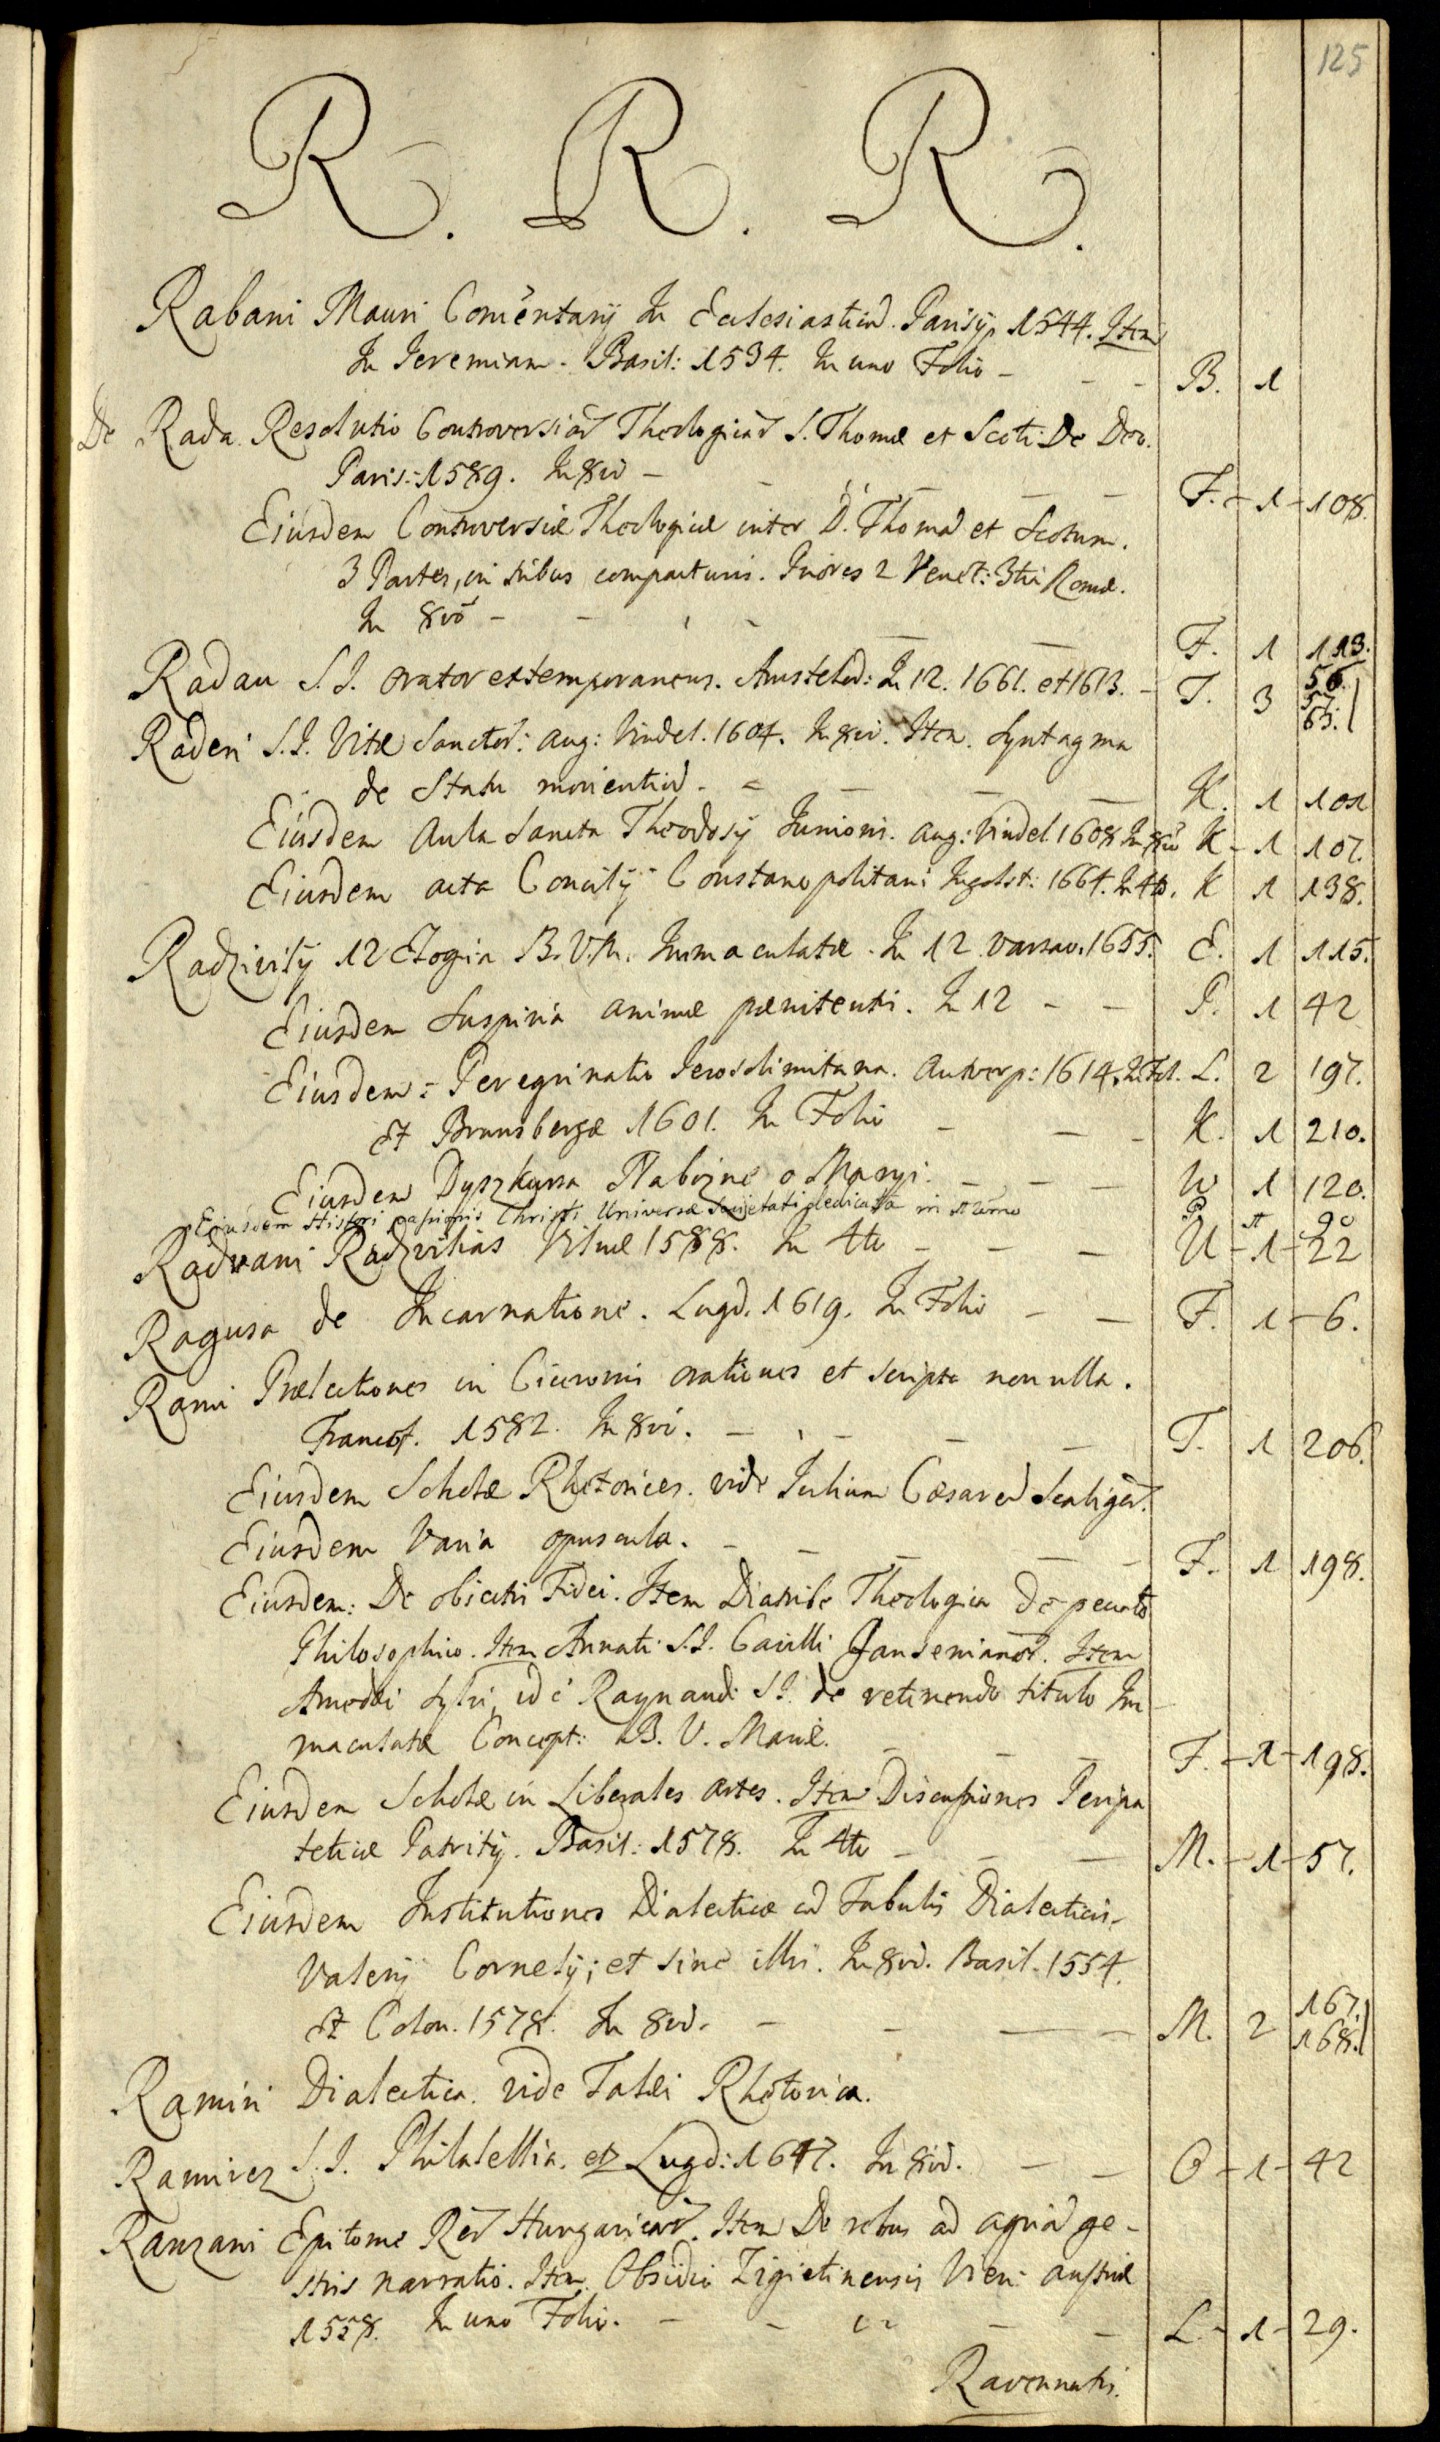 125
R. R. R.
Rabani Mauri Comentarij In Eclesiasticū. Parisijs 1544. Item
In Jeremiam. Basil: 1534. In uno Folio - - - B. 1
De Rada Resolutio Controversiar Theologicar S. Thomæ et Scoti De Deo.
Paris: 1589. In 8vo - - - - - F. - 1 - 108.
Eiusdem Controversiæ Theologicæ inter D. Thomā et Scotum.
3 Partes, in tribus compacturis. Priores 2 Venet: 3tia Romæ.
In 8vo - - - - - F. 1 113.
Radau S.J. Orator extemporaneus. Amstelod: In 12. 1661. et 1613. - T. 3 56. 57. 65.
Raderi S.J. Vitæ Sanctor: Aug: Vindel. 1604. In 8vo. Item. Syntagma
de Statu morientiū. - - - - K. 1 101
Eiusdem Aula Sancta Theodosij Junioris. Aug: Vindel. 1608 In 8vo K - 1 107.
Eiusdem acta Concilij Constanopolitani Ingolst: 1664. In 4to. K 1 138.
Radzivilij 12 Elogia B.V.M. Immaculatæ. In 12 Varsav. 1655. E. 1 115.
Eiusdem Suspiria animæ pænitenti. In 12 - - P. 1 42
Eiusdem: Peregrinatio Jerosolimitana. Antverp: 1614. In Fol. L. 2 197.
Et Brunsbergæ 1601. In Folio - - - K. 1 210.
Eiusdem Dyszkursa Nabożne o Maryi. - - - W 1 120.
Eiusdem Histori passionis Christi Universæ Societati dedicata in P 1 90
Radvani Radzivilias Vilnæ 1588. In 4to - - - U - 1 - 22
Ragusa de Incarnatione. Lugd. 1619. In Folio - - F. 1 - 6.
Rami Prælectiones in Ciceronis orationes et scripta nonulla.
Francof. 1582. In 8vo. - - - - T. 1 206.
Eiusdem Scholæ Rhetorices. vide Julium Cæsarem Scaliger.
Eiusdem Varia opuscula. - - - - - F. 1 198.
Eiusdem: De obiecto Fidei. Item Diatribe Theologica de peccato
Philosophico. Item Annati S.J. Cavilli Jansenianor. Item
Amedæi Sylvi, id ē Raynaudi S.J. de retinendo titulo Im-
maculatæ Concept: B. V. Mariæ. - - - F. - 1 - 198.
Eiusdem Scholæ in Liberales artes. Item Discussiones Peripa
teticæ Patritij. Basil: 1578. In 4to - - - M. - 1 - 57.
Eiusdem Institutiones Dialecticæ cū Tabulis Dialecticis
Valerij Cornelij; et sine illis. In 8vo. Basil. 1554.
Et Colon. 1578. In 8vo. - - - - M. 2 167. 168.
Ramiri Dialectica. vide Talæi Rhetorica.
Ramirez S.J. Philatellia. Lugd: 1647. In 8vo. - - O - 1 - 42
Ranzani Epitome Rer Hungaricar. Item De rebus ad Agriā ge-
stis narratio. Item. Obsidio Zigietinensis Vien: Austriæ
1558. In uno Folio. - - - - - L. - 1 - 29.
Ravennatis.